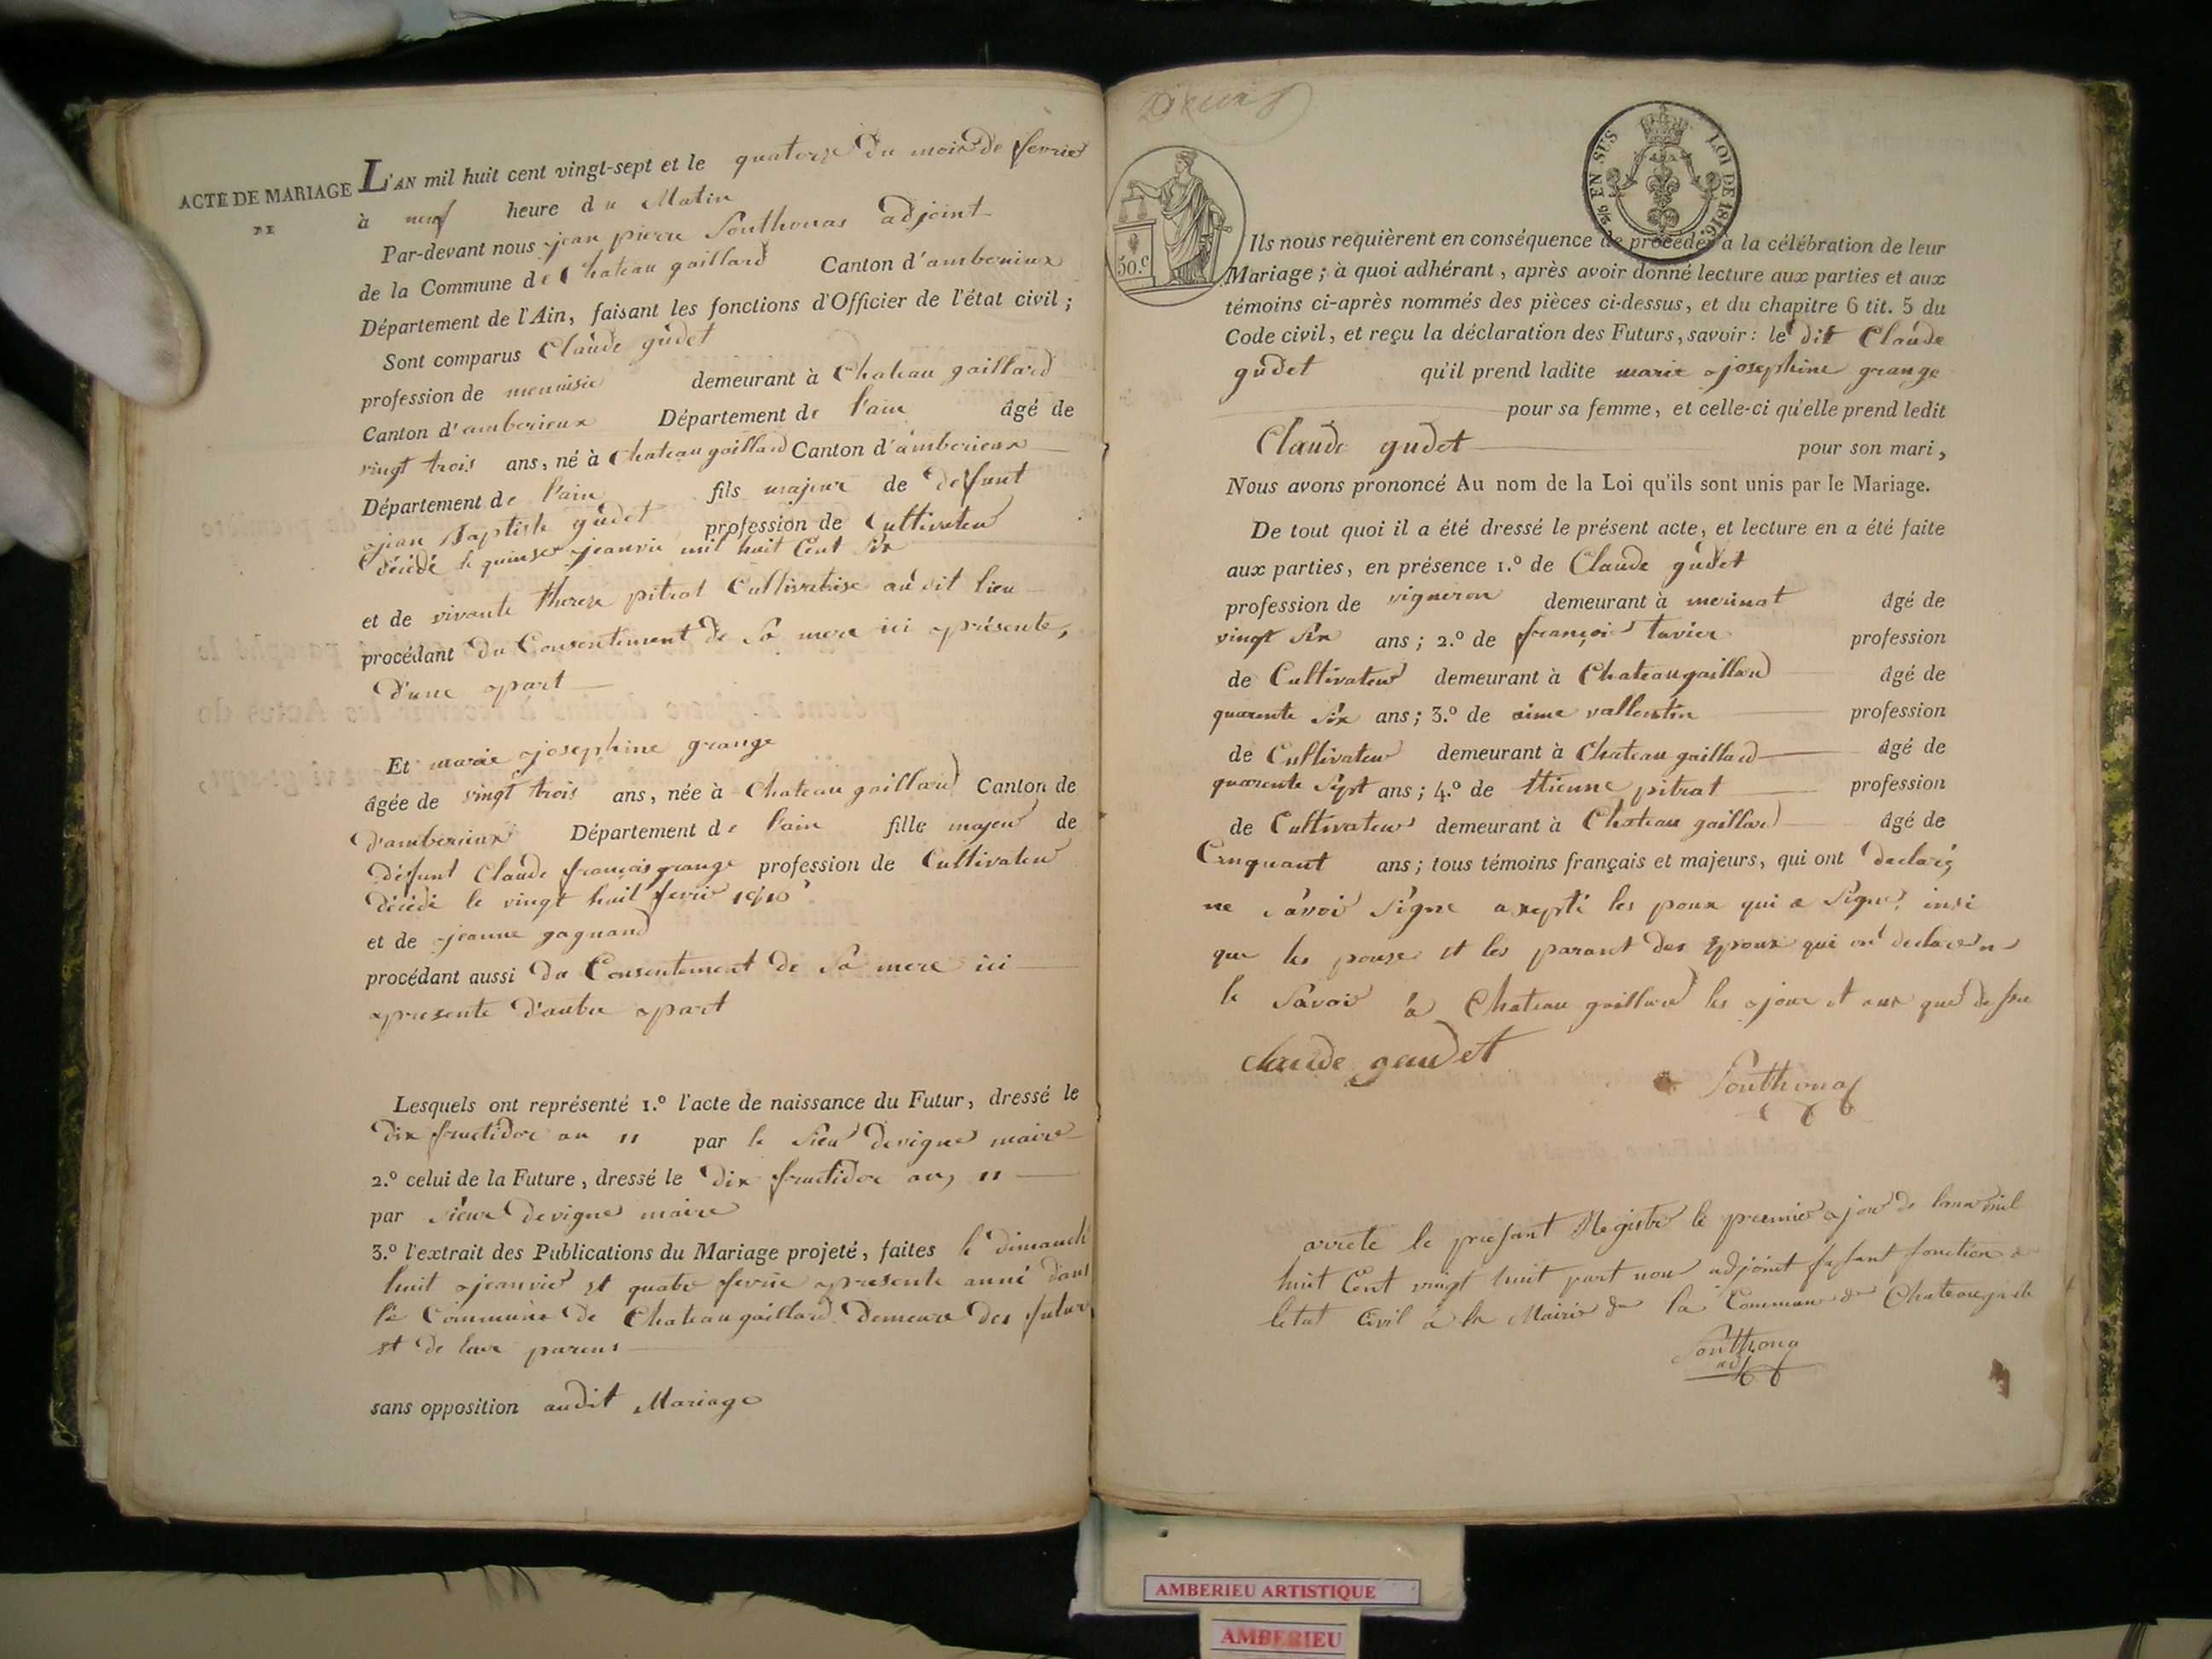 ACTE DE MARIAGE
DE
L'AN mil huit cent vingt-sept et le quatorze du mois de fevrier
à neuf heure du Matin
Par-devant nous jean pierre Ponthonas adjoint
de la Commune de Chateau gaillard Canton d'amberieux
Département de l'Ain, faisant les fonctions d'Officier de l'état civil ;
Sont comparus Claude gudet
profession de menuisie demeurant à Chateau gaillard
Canton d'amberieux Département de l'ain âgé de
vingt trois ans, né à Chateau gaillard Canton d'amberieux
Département de l'ain fils majeur de defunt
jean Baptiste gudet profession de Cultivateur
décédé le quinse jeanvie mil huit Cent six
et de vivante therese pitrat Cultivatrise au dit lieu
procédant du Consentement de Sa mere ici présente,
D'une part
Et marie josephine grange
âgée de vingt trois ans, née à Chateau gaillard Canton de
d'amberieux Département de l'ain fille majeur de
défunt Claude françois grange profession de Cultivateur
décédé le vingt huit fevrie 1810
et de jeanne gagnand
procédant aussi du Consentement de Sa mere ici
presente d'autre part
Lesquels ont représenté 1.º l'acte de naissance du Futur, dressé le
dix fructidor an 11 par le Sieur devigne maire
2.º celui de la Future, dressé le dix fructidor an 11
par Sieur Devigne maire
3.º l'extrait des Publications du Mariage projeté, faites le dimanch
huit jeanvier et quatre fevrie presente anné dans
la Commune de Chateau gaillard Demeure des futur
et de leur parens
sans opposition audit Mariage
50.c
5/6 EN SUS LOI DE 1816.
Ils nous requièrent en conséquence de procéder à la célébration de leur
Mariage ; à quoi adhérant, après avoir donné lecture aux parties et aux
témoins ci-après nommés des pièces ci-dessus, et du chapitre 6 tit. 5 du
Code civil, et reçu la déclaration des Futurs, savoir : le dit Claude
gudet qu'il prend ladite marie josephine grange
pour sa femme, et celle-ci qu'elle prend ledit
Claude gudet pour son mari,
Nous avons prononcé Au nom de la Loi qu'ils sont unis par le Mariage.
De tout quoi il a été dressé le présent acte, et lecture en a été faite
aux parties, en présence 1.º de Claude gudet
profession de vigneron demeurant à merinat âgé de
vingt six ans ; 2.º de françois tavier profession
de Cultivateur demeurant à Chateaugaillard âgé de
quarente six ans ; 3.º de aime vallentin profession
de Cultivateur demeurant à Chateau gaillard âgé de
quarente Sept ans ; 4.º de Etienne pitrat profession
de Cultivateur demeurant à Chateau gaillard âgé de
Cinquant ans ; tous témoins français et majeurs, qui ont declaré
ne Savoir Signe axepté les poux qui a Signe insi
que les pouse et les parant des Epoux qui ont declare n
le Savoir à Chateau gaillard les jour et ans que dessu
claude gaudet
Ponthonas
arrete le presant Registre le premier jour de lanné mil
huit Cent vingt huit part nou adjoint fesant fonction de
letat Civil à la Mairie de la Commune de Chateaugaill
Ponthona
adj
AMBERIEU ARTISTIQUE
AMBERIEU